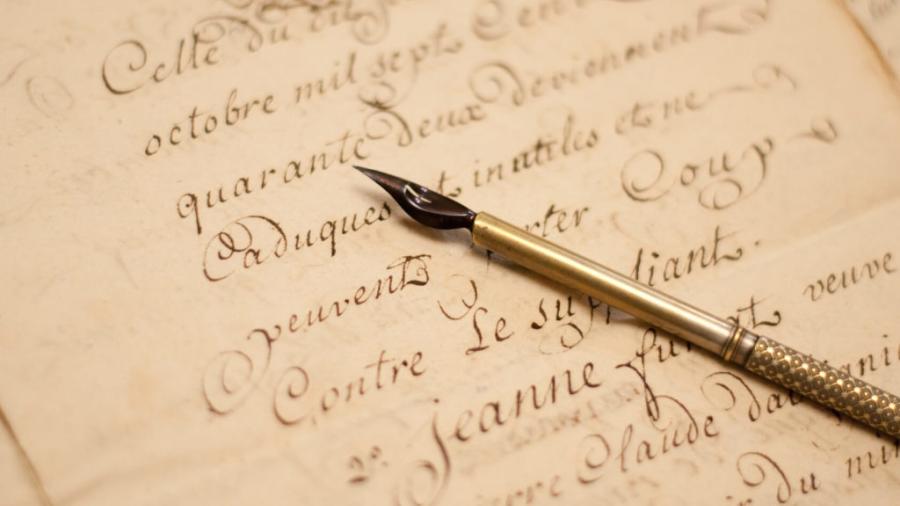 Celle du
octobre mil sept Cent
quarante deux deviennent
Caduques et inutiles et ne
peuvent Coup
Contre Le suppliant.
2º. Jeanne fut veuve
Claude
du